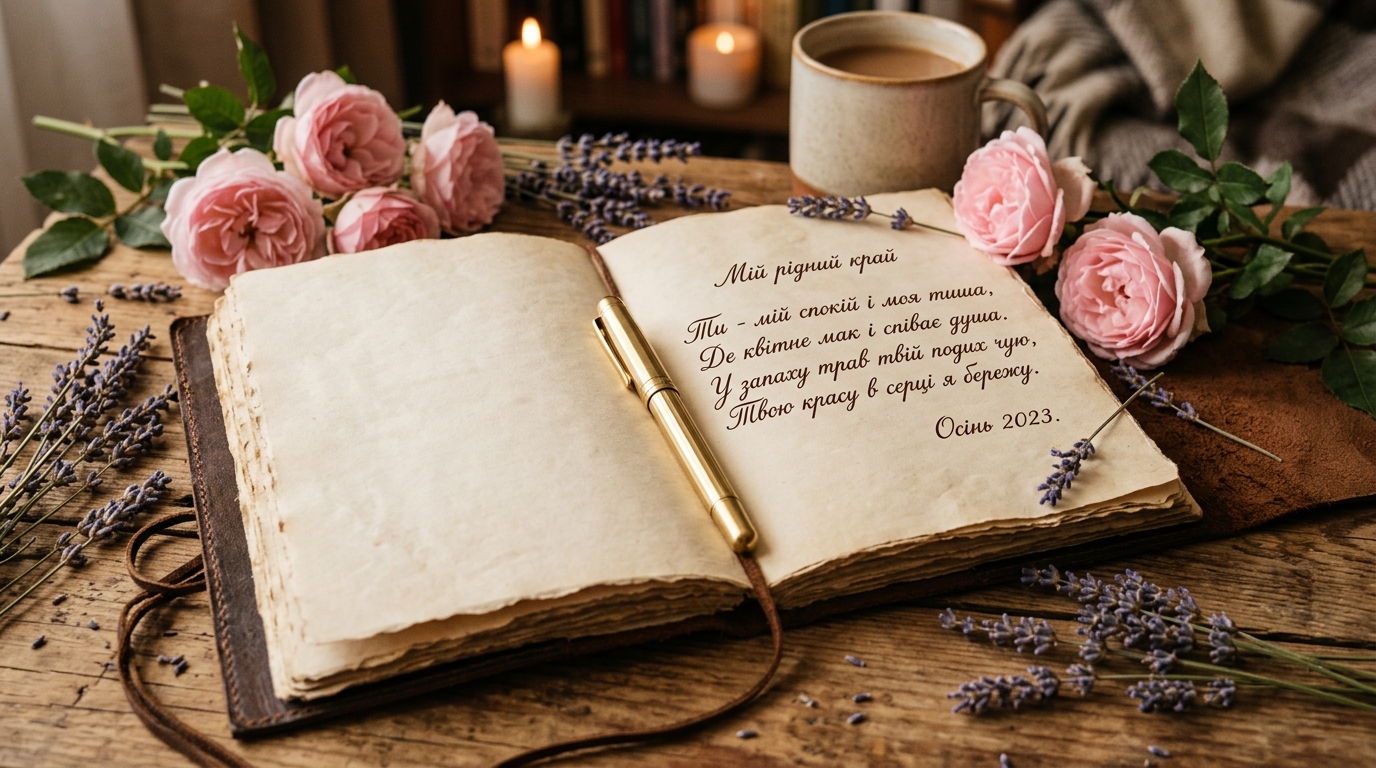 Мій рідний край
Ти - мій спокій і моя тиша,
Де квітне мак і співає душа.
У запаху трав твій подих чую,
Твою красу в серці я бережу.
Осінь 2023.